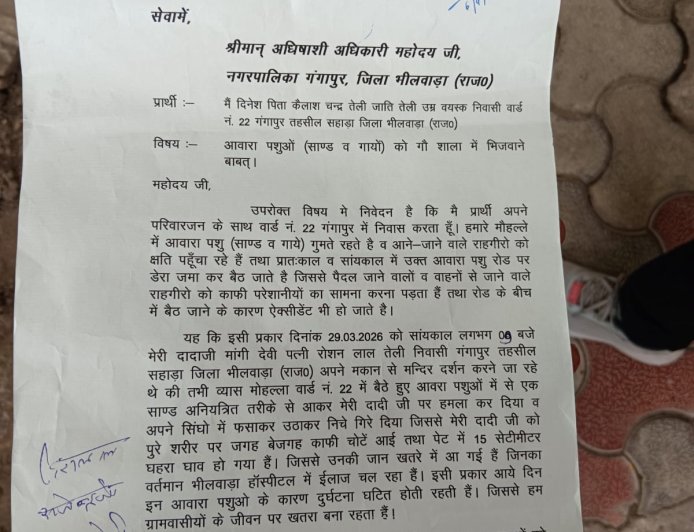 सेवामें,
श्रीमान् अधिषाशी अधिकारी महोदय जी,
नगरपालिका गंगापुर, जिला भीलवाड़ा (राज0)
प्रार्थी :– मैं दिनेश पिता कैलाश चन्द्र तेली जाति तेली उम्र वयस्क निवासी वार्ड
नं. 22 गंगापुर तहसील सहाड़ा जिला भीलवाड़ा (राज0)
विषय :– आवारा पशुओं (साण्ड व गायों) को गौ शाला में भिजवाने
बाबत्।
महोदय जी,
उपरोक्त विषय मे निवेदन है कि मै प्रार्थी अपने
परिवारजन के साथ वार्ड नं. 22 गंगापुर में निवास करता हूँ। हमारे मौहल्ले
में आवारा पशु (साण्ड व गाये) गुमते रहते है व आने–जाने वाले राहगीरो को
क्षति पहुँचा रहे हैं तथा प्रातःकाल व सांयकाल में उक्त आवारा पशु रोड पर
डेरा जमा कर बैठ जाते है जिससे पैदल जाने वालों व वाहनों से जाने वाले
राहगीरो को काफी परेशानीयों का सामना करना पड़ता हैं तथा रोड के बीच
में बैठ जाने के कारण ऐक्सीडेंट भी हो जाते है।
यह कि इसी प्रकार दिनांक 29.03.2026 को सांयकाल लगभग बजे
मेरी दादाजी मांगी देवी पत्नी रोशन लाल तेली निवासी गंगापुर तहसील
सहाड़ा जिला भीलवाड़ा (राज0) अपने मकान से मन्दिर दर्शन करने जा रहे
थे की तभी व्यास मोहल्ला वार्ड नं. 22 में बैठे हुए आवरा पशुओं में से एक
साण्ड अनियत्रित तरीके से आकर मेरी दादी जी पर हमला कर दिया व
अपने सिंघो में फसाकर उठाकर निचे गिरे दिया जिससे मेरी दादी जी को
पुरे शरीर पर जगह बेजगह काफी चोटें आई तथा पेट में 15 सेटीमीटर
घहरा घाव हो गया हैं। जिससे उनकी जान खतरे में आ गई हैं जिनका
वर्तमान भीलवाड़ा हॉस्पीटल में ईलाज चल रहा हैं। इसी प्रकार आये दिन
इन आवारा पशुओ के कारण दुर्घटना घटित होती रहती हैं। जिससे हम
ग्रामवासीयों के जीवन पर खतरा बना रहता हैं।